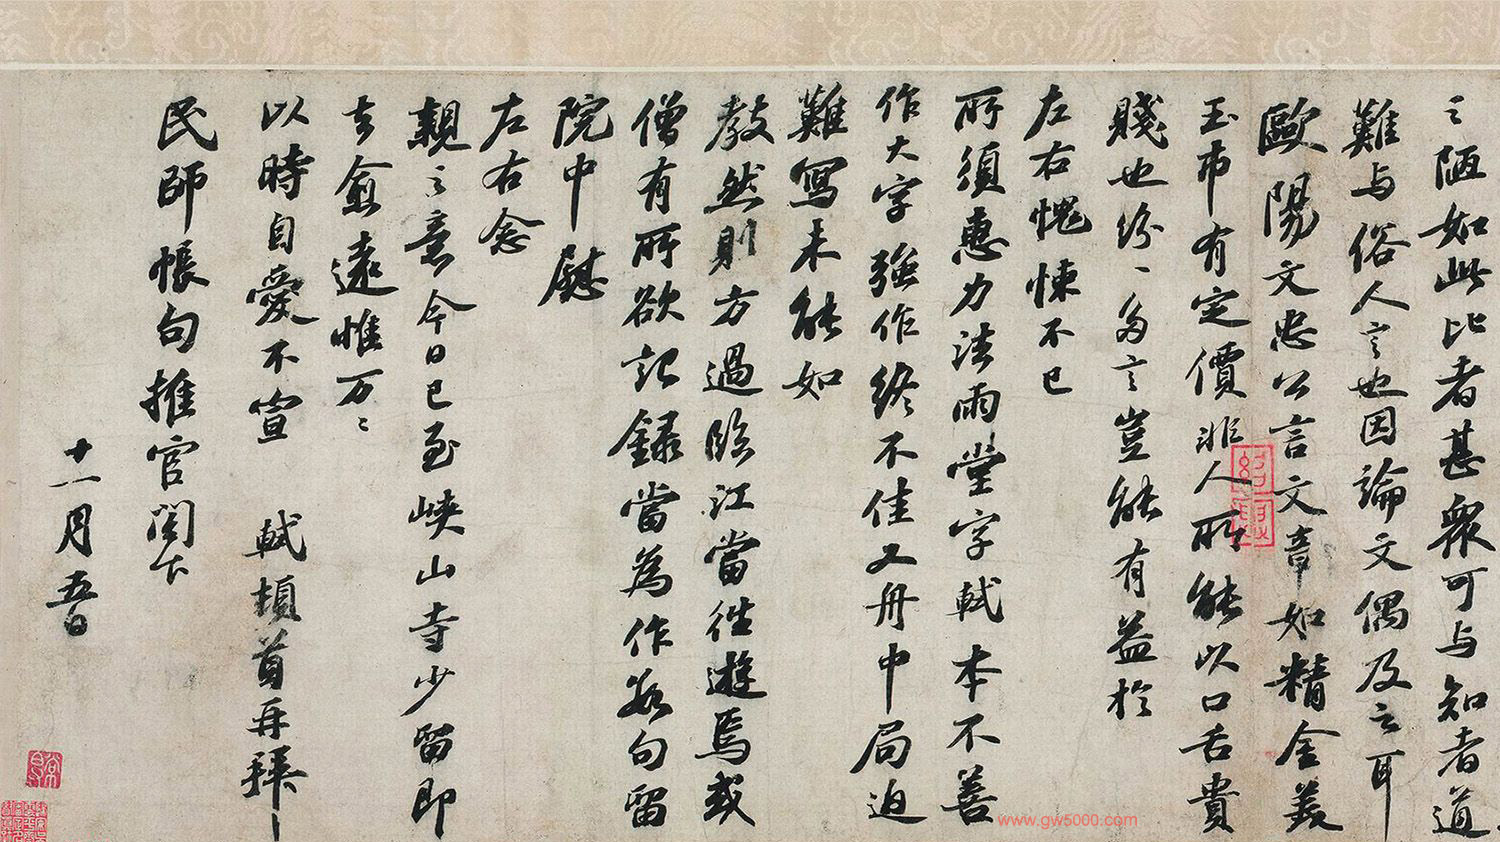 之陋如此比者甚衆可与知者道
難与俗人言也因論文偶及之耳
歐陽文忠公言文章如精金美
玉市有定價非人所能以口舌貴
賤也紛〻多言豈能有益於
左右愧悚不已
所須惠力法雨堂字軾本不善
作大字強作終不佳又舟中局迫
難寫未能如
教然則方過臨江當往遊焉或
僧有所欲記録當為作數句留
院中慰
左右念
親之意今日已至峽山寺少留即
去愈遠惟万〻
以時自愛不宣 軾頓首再拜
民師帳句推官閤下
十一月五日
www.gw5000.com